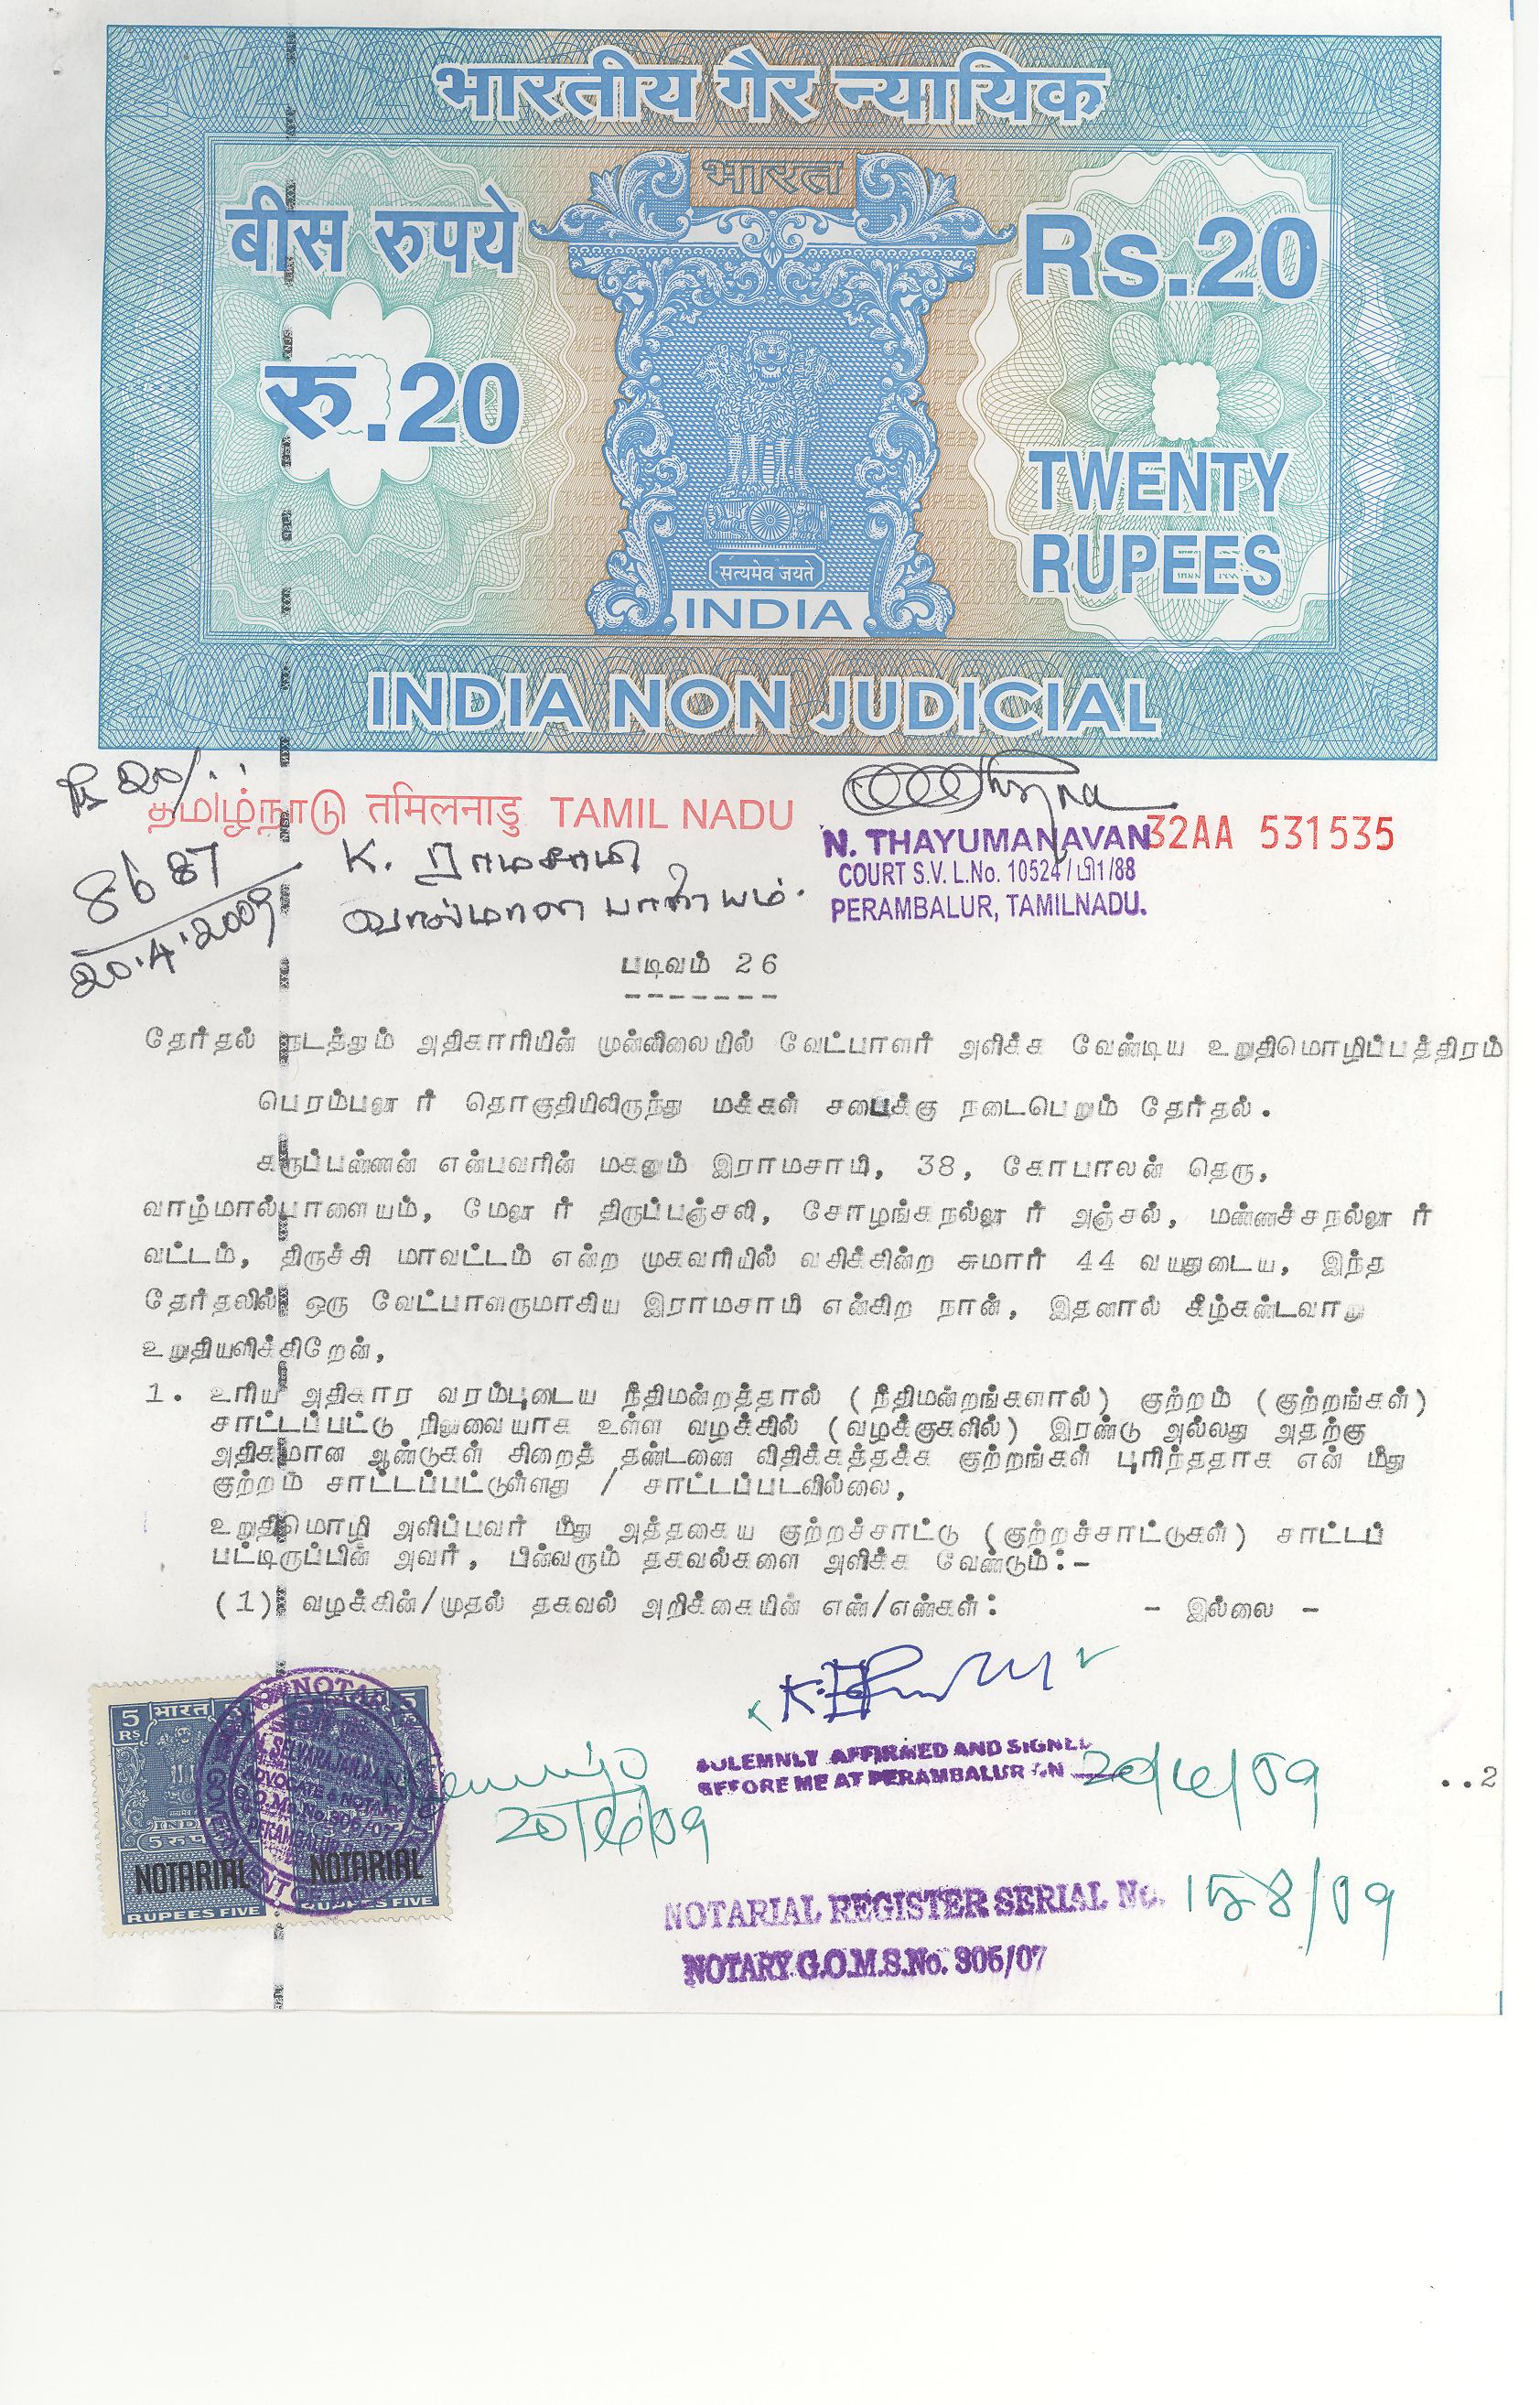 भारतीय गैर न्यायिक
भारत
बीस रुपये
Rs.20
रु.20
TWENTY
RUPEES
सत्यमेव जयते
INDIA
INDIA NON JUDICIAL
Rs 20/..
தமிழ்நாடு तमिलनाडु TAMIL NADU
N. THAYUMANAVAN
32AA 531535
COURT S.V. L.No. 10524/பி1/88
PERAMBALUR, TAMILNADU.
8687
20.4.2009
K. ராமசாமி
வாழ்மால் பாளையம்.
படிவம் 26
-------
தேர்தல் நடத்தும் அதிகாரியின் முன்னிலையில் வேட்பாளர் அளிக்க வேண்டிய உறுதிமொழிப்பத்திரம்
பெரம்பலூர் தொகுதியிலிருந்து மக்கள் சபைக்கு நடைபெறும் தேர்தல்.
கருப்பண்ணன் என்பவரின் மகனும் இராமசாமி, 38, கோபாலன் தெரு,
வாழ்மால்பாளையம், மேலூர் திருப்பஞ்சலி, சோழங்கநல்லூர் அஞ்சல், மண்ணச்சநல்லூர்
வட்டம், திருச்சி மாவட்டம் என்ற முகவரியில் வசிக்கின்ற சுமார் 44 வயதுடைய, இந்த
தேர்தலில் ஒரு வேட்பாளருமாகிய இராமசாமி என்கிற நான், இதனால் கீழ்கண்டவாறு
உறுதியளிக்கிறேன்,
1. உரிய அதிகார வரம்புடைய நீதிமன்றத்தால் (நீதிமன்றங்களால்) குற்றம் (குற்றங்கள்)
சாட்டப்பட்டு நிலுவையாக உள்ள வழக்கில் (வழக்குகளில்) இரண்டு அல்லது அதற்கு
அதிகமான ஆண்டுகள் சிறைத் தண்டனை விதிக்கத்தக்க குற்றங்கள் புரிந்ததாக என் மீது
குற்றம் சாட்டப்பட்டுள்ளது / சாட்டப்படவில்லை,
உறுதிமொழி அளிப்பவர் மீது அத்தகைய குற்றச்சாட்டு (குற்றச்சாட்டுகள்) சாட்டப்
பட்டிருப்பின் அவர், பின்வரும் தகவல்களை அளிக்க வேண்டும்:-
(1) வழக்கின்/முதல் தகவல் அறிக்கையின் எண்/எண்கள்: - இல்லை -
SOLEMNLY AFFIRMED AND SIGNED
BEFORE ME AT PERAMBALUR ON 20/4/09
..2
20/4/09
5 भारत 5
RS
SELVARAJAN
ADVOCATE & NOTARY
G.O.Ms.No.906/07
PERAMBALUR
NOTARIAL NOTARIAL
RUPEES FIVE RUPEES FIVE
NOTARIAL REGISTER SERIAL No. 158/09
NOTARY G.O.M.S.No. 906/07